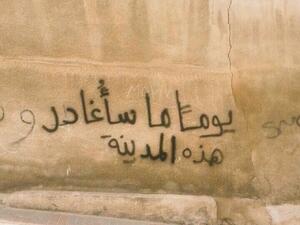 يومًا ما سأُغادر
هذه المدينة